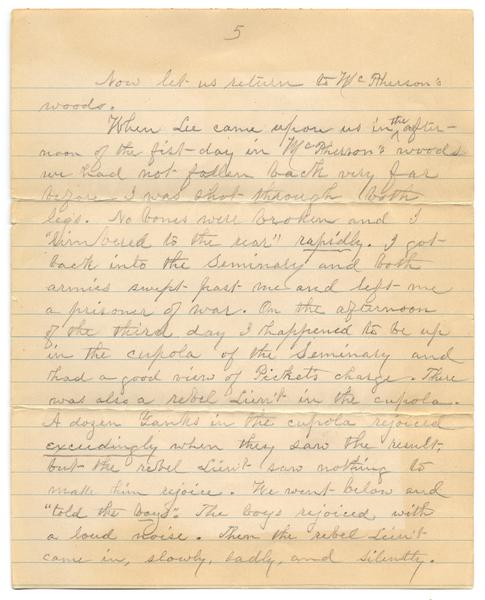 5
Now let us return to McPherson's
woods.
When Lee came upon us in the after-
noon of the fist day in McPherson's woods
we had not fallen back very far
before I was shot through both
legs. No bones were broken and I
"limbered to the rear" rapidly. I got
back into the Seminary and both
armies swept past me and left me
a prisoner of war. On the afternoon
of the third day I happened to be up
in the cupola of the Seminary and
had a good view of Pickets charge. There
was also a rebel Lieu't in the cupola.
A dozen Yanks in the cupola rejoiced
exceedingly when they saw the result,
but the rebel Lieu't saw nothing to
make him rejoice. We went below and
"told the boys". The boys rejoiced with
a loud noise. Then the rebel Lieu't
came in, slowly, sadly, and silently.